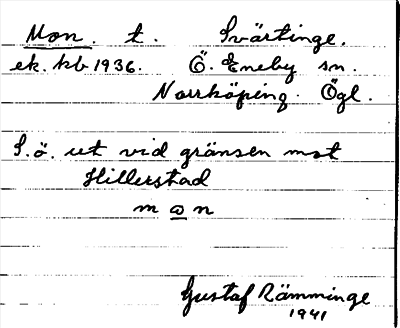 Mon. t. Svärtinge.
ek. kb 1936. Ö. Eneby sn.
Norrköping. Ögl.
S.ö. ut vid gränsen mot
Hillerstad
m o n
Gustaf Rämminge
1941